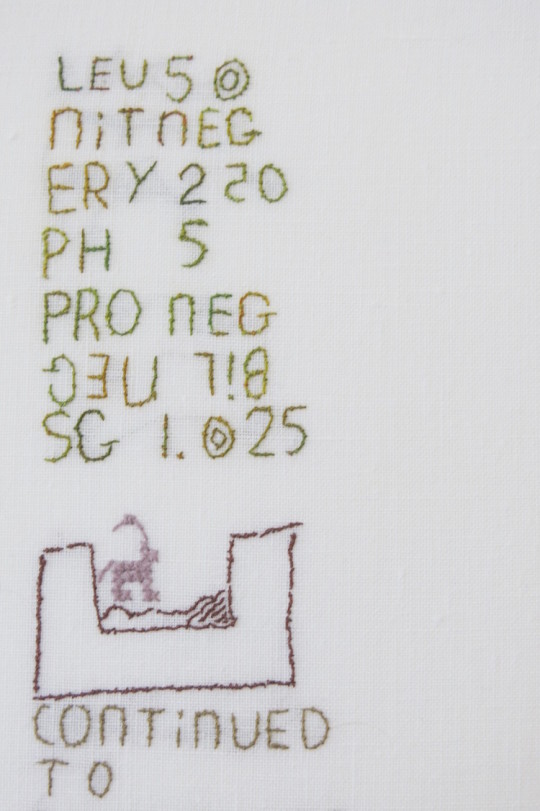 LEU 50
NiT NEG
ERY 2 50
PH 5
PRO NEG
BiL NEG
SG 1.025
CONTiNUED
TO